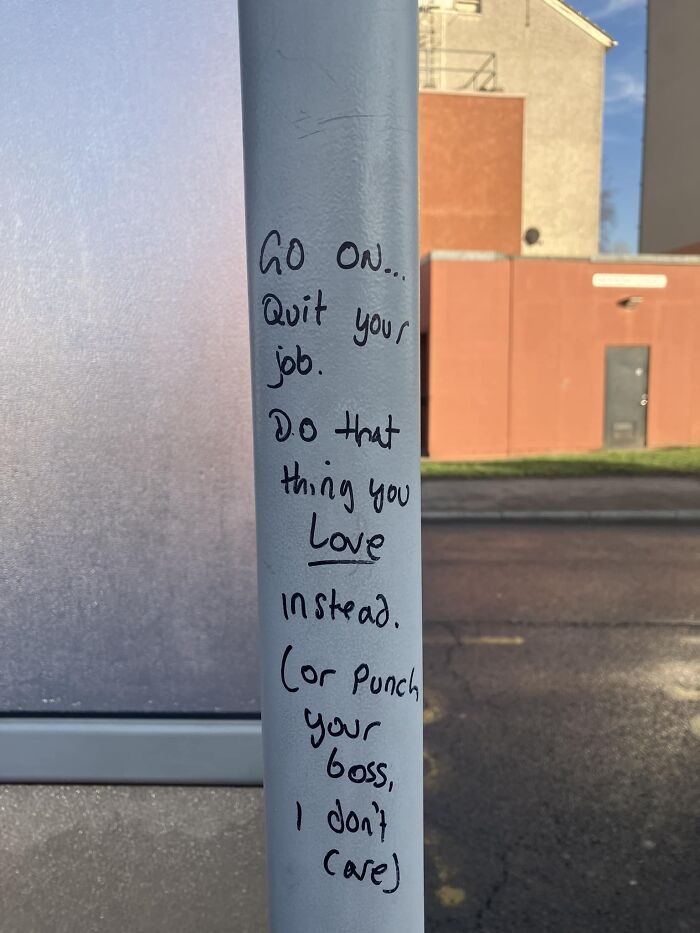 GO ON...
Quit your
job.
Do that
thing you
Love
instead.
(or Punch
your
boss,
I don't
care)